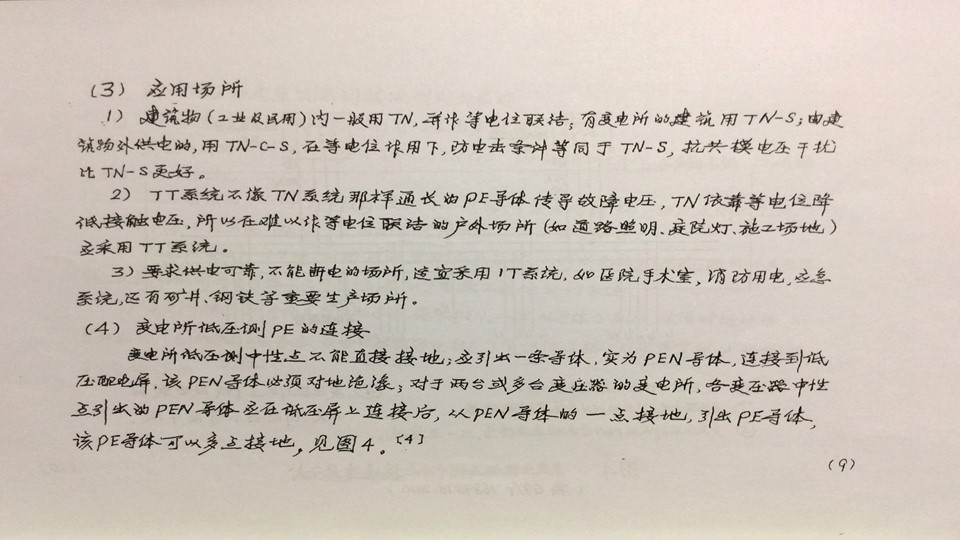 (3) 应用场所
1) 建筑物(工业及民用)内一般用TN,并作等电位联结;有变电所的建筑用TN-S;由建
筑物外供电的,用TN-C-S,在等电位作用下,防电击条件等同于TN-S,抗共模电压干扰
比TN-S更好。
2) TT系统不像TN系统那样通长的PE导体传导故障电压,TN依靠等电位降
低接触电压,所以在难以作等电位联结的户外场所(如道路照明、庭院灯、施工场地)
应采用TT系统。
3) 要求供电可靠,不能断电的场所,适宜采用IT系统,如医院手术室,消防用电,应急
系统,还有矿井、钢铁等重要生产场所。
(4) 变电所低压侧PE的连接
变电所低压侧中性点不能直接接地;应引出一条导体,实为PEN导体,连接到低
压配电屏,该PEN导体必须对地绝缘;对于两台或多台变压器的变电所,各变压器中性
点引出的PEN导体应在低压屏上连接后,从PEN导体的一点接地,引出PE导体,
该PE导体可以多点接地,见图4。[4]
(9)